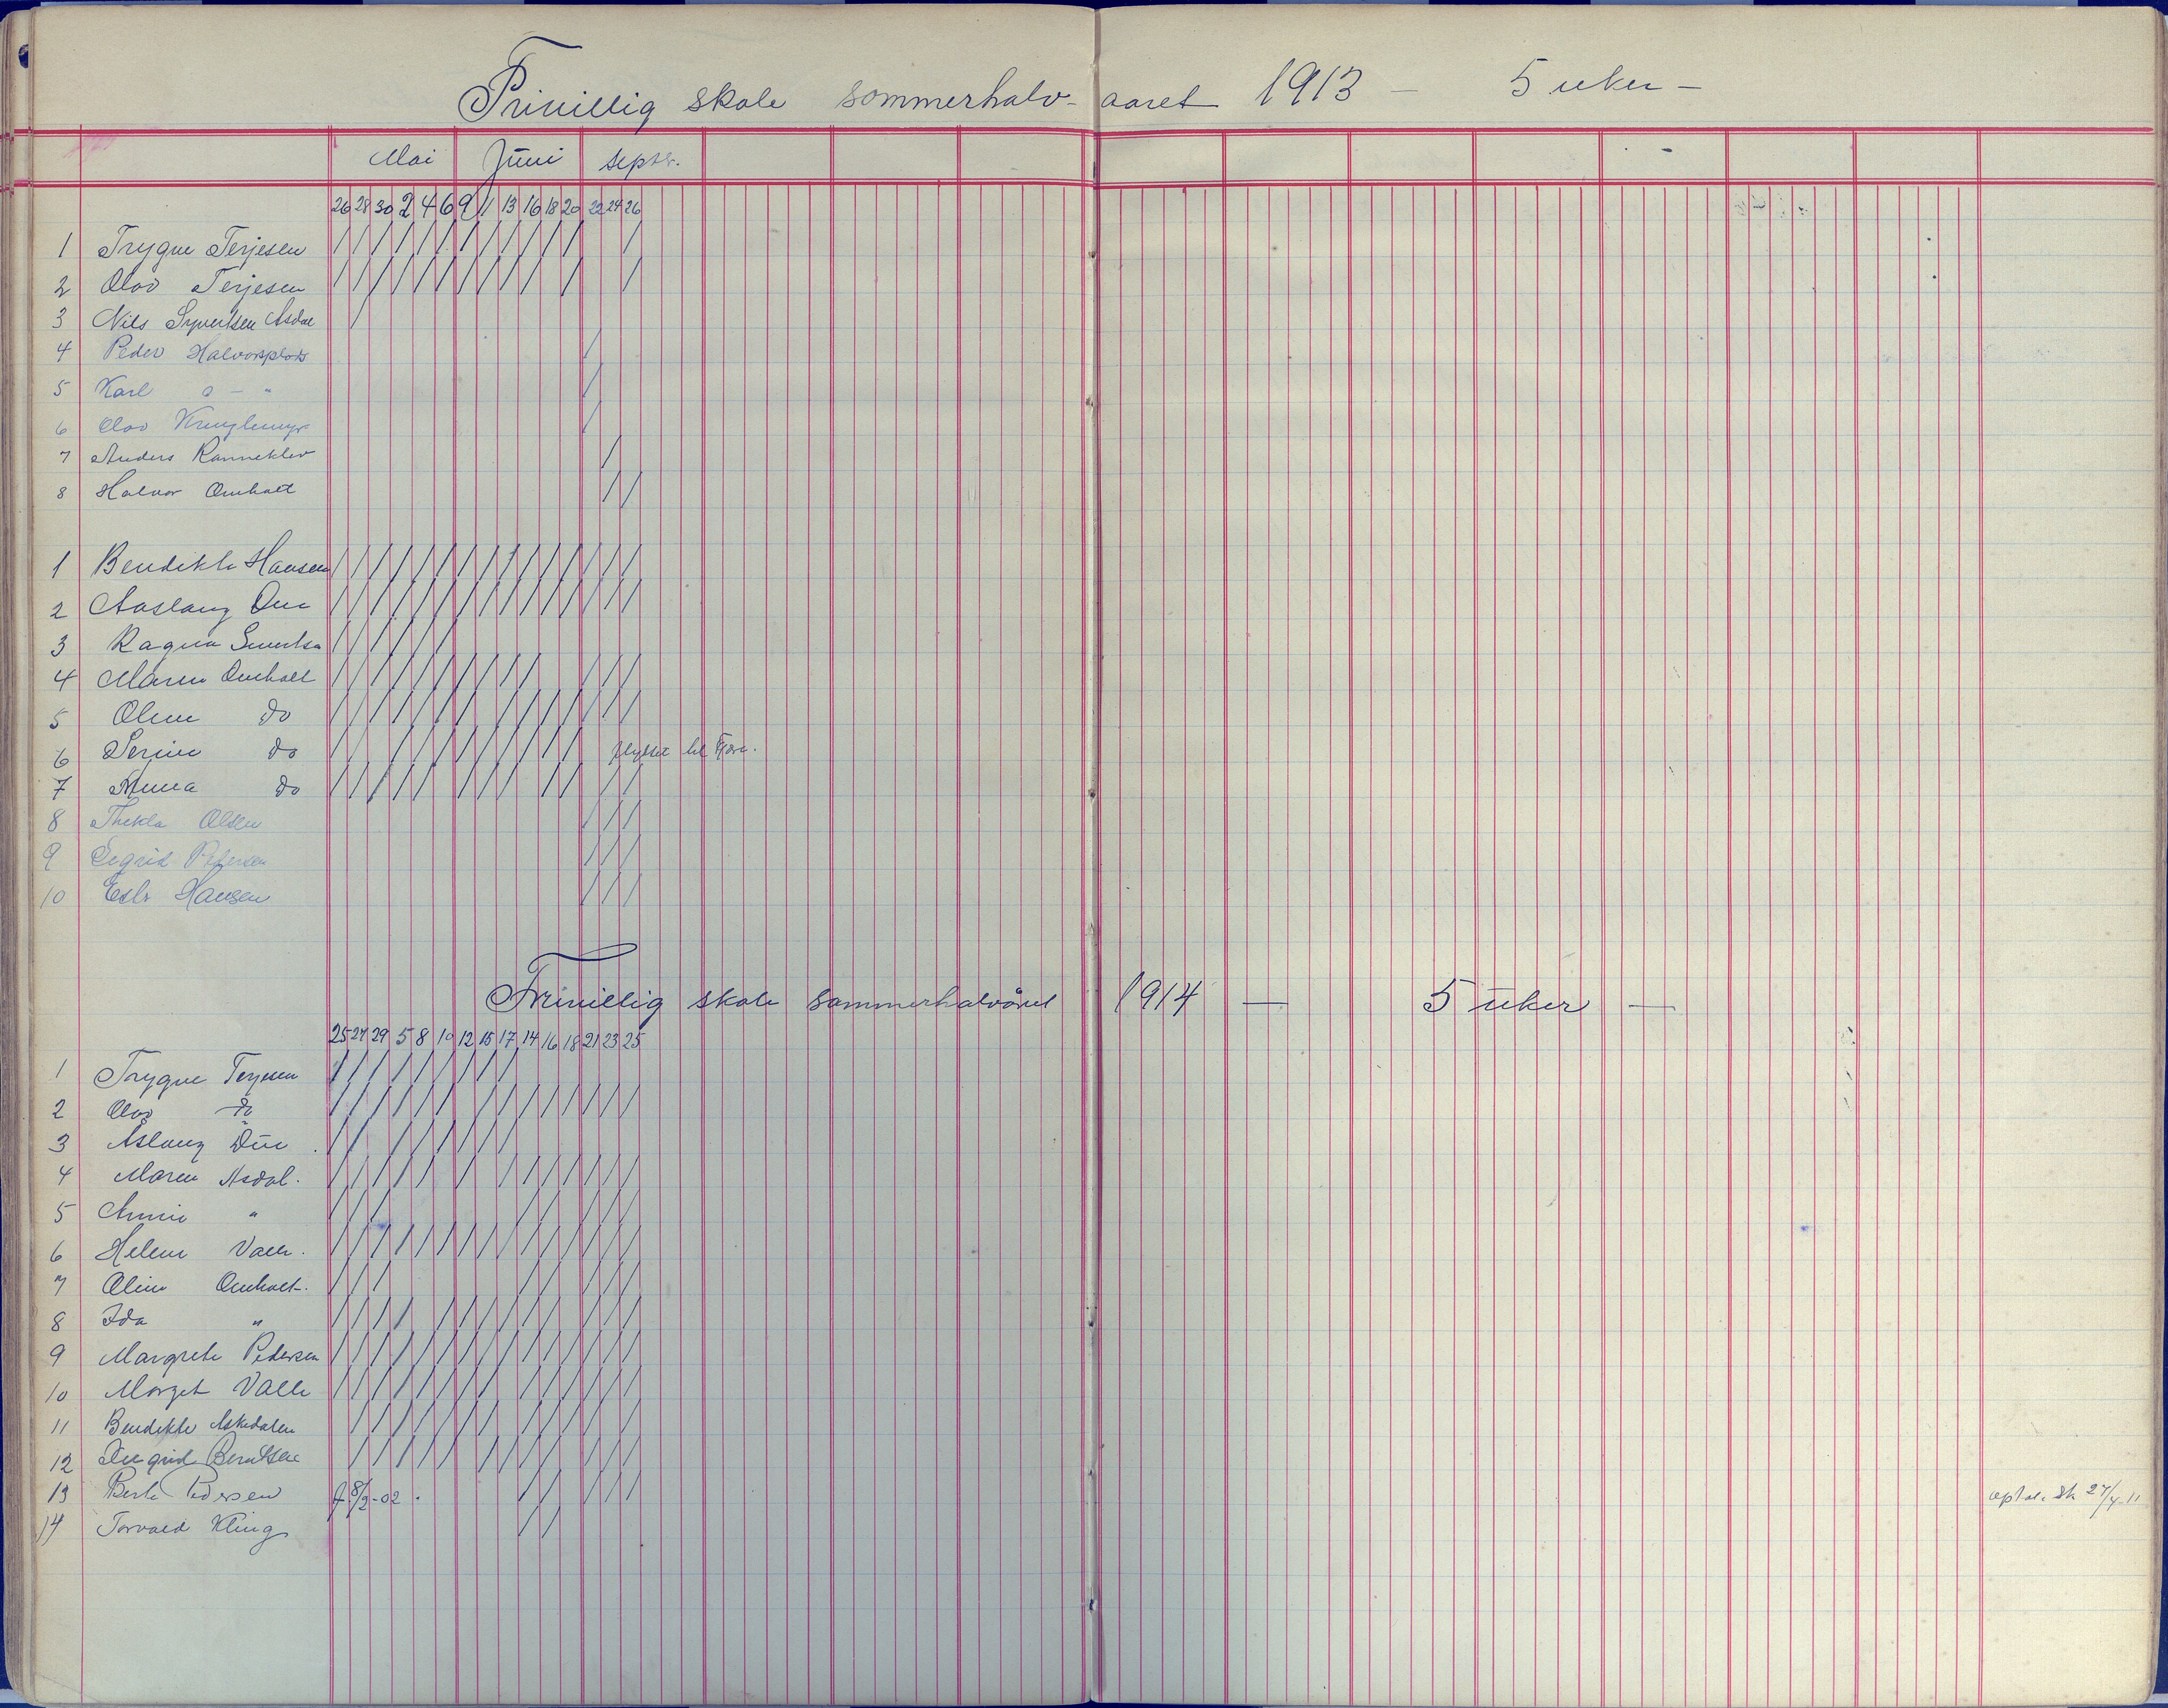 Frivillig skole sommerhalv-aaret 1913 - 5 uker -
Mai Juni Septr.
26 28 30 2 4 6 9 11 13 16 18 20 22 24 26
1 Trygve Terjesen
2 Olav Terjesen
3 Nils Syvertsen Asdal
4 Peder Halvorsplads
5 Karl " - "
6 Olav
7 Anders Ramneklev
8 Halvor Omholt
1 Bendikte Hansen
2 Aaslaug Due
3 Ragna
4 Maren Omholt
5 Oline do
6 Serine do flyttet til Fjære.
7 Anna do
8 Thekla Olsen
9 Sigrid Pedersen
10 Hansen
Frivillig skole sommerhalvåret 1914 — 5 uker —
25 27 29 5 8 10 12 15 17 14 16 18 21 23 25
1 Trygve Terjesen
2 Olav do
3 Åslaug Due
4 Maren Asdal.
5 Annie "
6 Helene Valle.
7 Oline Omholt.
8 Ida "
9 Margrete Pedersen
10 Marget Valle
11 Bendikte Askedalen
12 Ingrid Berntsen
13 Pedersen f. 8/2-02. opt. a. sk 27/4-11
14 Torvald Kling